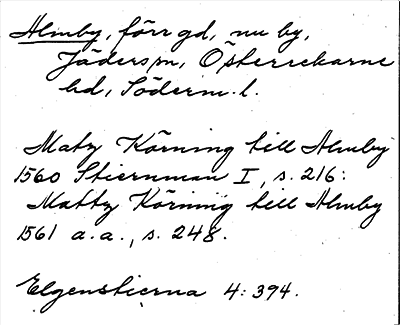 Almby, förr gd, nu by,
Jäders sn, Österrekarne
hd, Söderm. l.
Matz Körning till Almby
1560 Stiernman I, s. 216:
Mattz Körning till Almby
1561 a. a., s. 248.
Elgenstierna 4: 394.